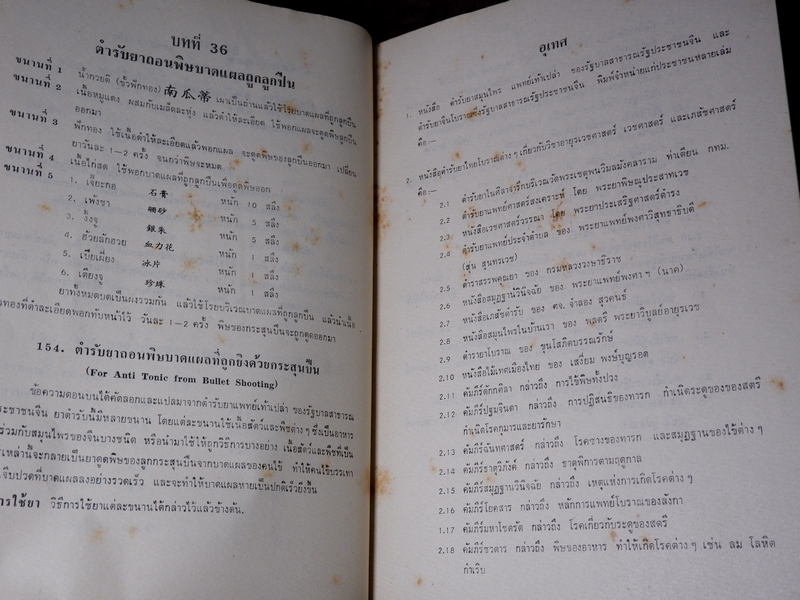 บทที่ 36
ตำรับยาถอนพิษบาดแผลถูกลูกปืน
ขนานที่ 1 น้ำกวยตี (ขั้วฟักทอง) 南瓜蒂 เผาเป็นถ่านแล้วใช้โรยบาดแผลที่ถูกลูกปืน
ขนานที่ 2 เนื้อหมูแดง ผสมกับเมล็ดละหุ่ง แล้วตำให้ละเอียด ใช้พอกแผลจะดูดพิษลูกปืน
ออกมา
ขนานที่ 3 ฟักทอง ใช้เนื้อตำให้ละเอียดแล้วพอกแผล จะดูดพิษของลูกปืนออกมา เปลี่ยน
ยาวันละ 1-2 ครั้ง จนกว่าพิษจะหมด
ขนานที่ 4 เนื้อไก่สด ใช้พอกบาดแผลที่ถูกลูกปืนเพื่อดูดพิษออก
ขนานที่ 5
1. เจี๊ยะกอ 石膏 หนัก 10 สลึง
2. เพ่งซา 硼砂 หนัก 5 สลึง
3. งิ้งจู 銀朱 หนัก 5 สลึง
4. ฮ้วยลักฮวย 血力花 หนัก 1 สลึง
5. เปียเผี่ยง 冰片 หนัก 1 สลึง
6. เตียงจู 珍珠 หนัก 1 สลึง
ยาทั้งหมดบดเป็นผงรวมกัน แล้วใช้โรยบริเวณบาดแผลที่ถูกลูกปืน แล้วนำเนื้อ
ทองที่ตำละเอียดพอกทับหน้าไว้ วันละ 1-2 ครั้ง พิษของกระสุนปืนจะถูกดูดออกมา
154. ตำรับยาถอนพิษบาดแผลที่ถูกยิงด้วยกระสุนปืน
(For Anti Tonic from Bullet Shooting)
ข้อความตอนบนได้คัดลอกและแปลมาจากตำรับยาแพทย์เท้าเปล่า ของรัฐบาลสาธารณ
ระชาชนจีน ยาตำรับนี้มีหลายขนาน โดยแต่ละขนานใช้เนื้อสัตว์และพืชต่าง ๆ ซึ่งเป็นอาหาร
ร่วมกับสมุนไพรของจีนบางชนิด หรือนำมาใช้ให้ถูกวิธีการบางอย่าง เนื้อสัตว์และพืชที่เป็น
เหล่านั้นจะกลายเป็นยาดูดพิษของลูกกระสุนปืนจากบาดแผลของคนไข้ ทำให้คนไข้บรรเทา
จ็บปวดที่บาดแผลลงอย่างรวดเร็ว และจะทำให้บาดแผลหายเป็นปกติเร็วยิ่งขึ้น
การใช้ยา วิธีการใช้ยาแต่ละขนานได้กล่าวไว้แล้วข้างต้น.
อุเทศ
1. หนังสือ ตำรับยาสมุนไพร แพทย์เท้าเปล่า ของรัฐบาลสาธารณรัฐประชาชนจีน และ
ตำรับยาจีนโบราณซึ่งรัฐบาลสาธารณรัฐประชาชนจีน พิมพ์จำหน่ายแก่ประชาชนหลายเล่ม
คือ:-
2. หนังสือตำรับยาไทยโบราณต่าง ๆ เกี่ยวกับวิชาอายุรเวชศาสตร์ เวชศาสตร์ และเภสัชศาสตร์
คือ:-
2.1 ตำรับยาในศิลาจารึกบริเวณวัดพระเชตุพนวิมลมังคลาราม ท่าเตียน กทม.
2.2 ตำรับยาแพทย์ศาสตร์สงเคราะห์ โดย พระยาพิษณุประสาทเวช
2.3 หนังสือเวชศาสตร์วรรณา โดย พระยาประเสริฐศาสตร์ดำรง
2.4 ตำรับยาแพทย์ประจำตำบล ของ พระยาแพทย์พงศาวิสุทธาธิบดี
(สุ่น สุนทรเวช)
2.5 ตำราสรรพคุณยา ของ กรมหลวงวงษาธิราช
2.6 หนังสือสมุฏฐานวินิจฉัย ของ พระยาแพทย์พงศา ฯ (นาค)
2.7 หนังสือเภสัชตำรับ ของ ศจ. จำลอง สุวคนธ์
2.8 หนังสือสมุนไพรในบ้านเรา ของ พลตรี พระยาวิบูลย์อายุรเวช
2.9 ตำรายาโบราณ ของ ขุนโสภิตบรรณรักษ์
2.10 หนังสือไม้เทศเมืองไทย ของ เสงี่ยม พงษ์บุญรอด
2.11 คัมภีร์ตักกศิลา กล่าวถึง การใช้พิษทั้งปวง
2.12 คัมภีร์ปฐมจินดา กล่าวถึง การปฏิสนธิของทารก กำเนิดระดูของของสตรี
กำเนิดโรคกุมารและยารักษา
2.13 คัมภีร์ฉันทศาสตร์ กล่าวถึง โรคซางของทารก และสมุฏฐานของไข้ต่าง ๆ
2.14 คัมภีร์ธาตุวิภังค์ กล่าวถึง ธาตุพิการตามฤดูกาล
2.15 คัมภีร์สมุฏฐานวินิจฉัย กล่าวถึง เหตุแห่งการเกิดโรคต่าง ๆ
2.16 คัมภีร์โยคสาร กล่าวถึง หลักการแพทย์โบราณของลังกา
1.17 คัมภีร์มหาโชตรัต กล่าวถึง โรคเกี่ยวกับระดูของสตรี
2.18 คัมภีร์ชวดาร กล่าวถึง พิษของอาหาร ทำให้เกิดโรคต่าง ๆ เช่น ลม โลหิต
กำเริบ